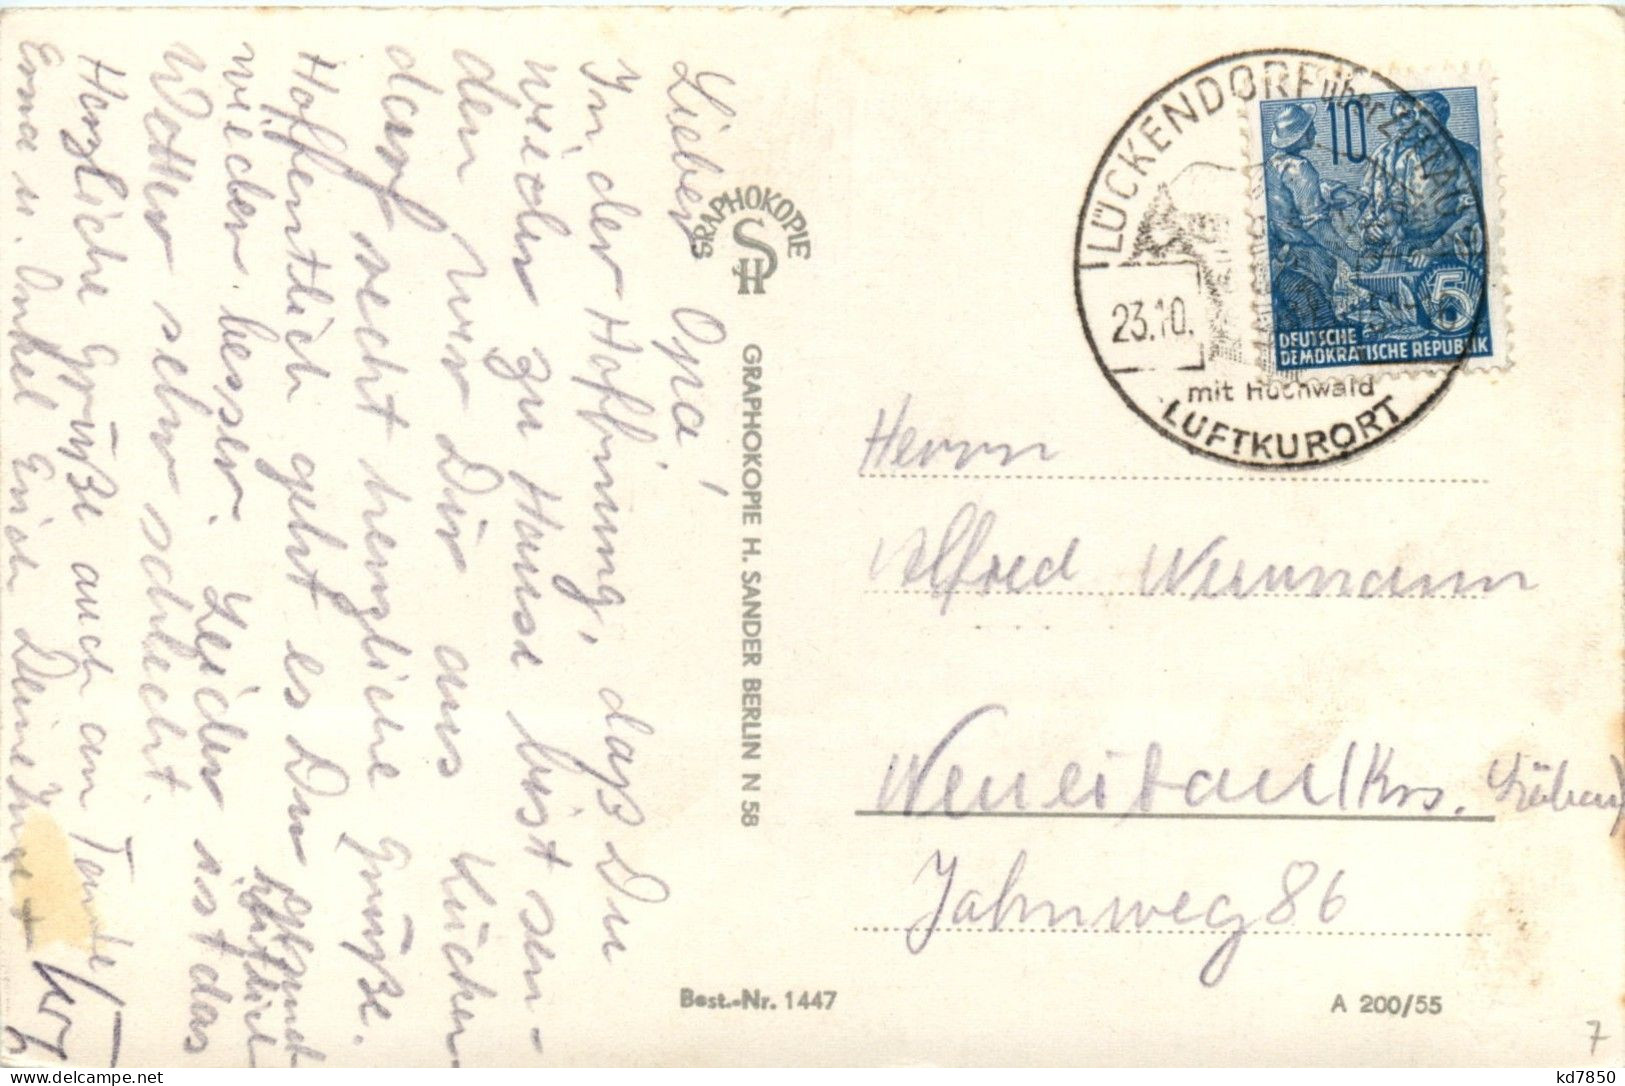 Lieber Opa!
In der Hoffnung, daß Du
wieder zu Hause bist sen-
den wir Dir aus Lücken
dorf recht herzliche Grüße.
Hoffentlich geht es Dir
wieder besser. Leider ist das
Wetter sehr schlecht.
Herzliche Grüße auch an Tante
Erna u. Onkel Erich Deine
GRAPHOKOPIE
H S
GRAPHOKOPIE H. SANDER BERLIN N 58
LÜCKENDORF über ZITTAU
23.10.
mit Hochwald
LUFTKURORT
10
5
DEUTSCHE
DEMOKRATISCHE REPUBLIK
Herrn
Alfred
(Krs. Löbau)
Jahnweg 86
Best.-Nr. 1447
A 200/55
7
kd7850